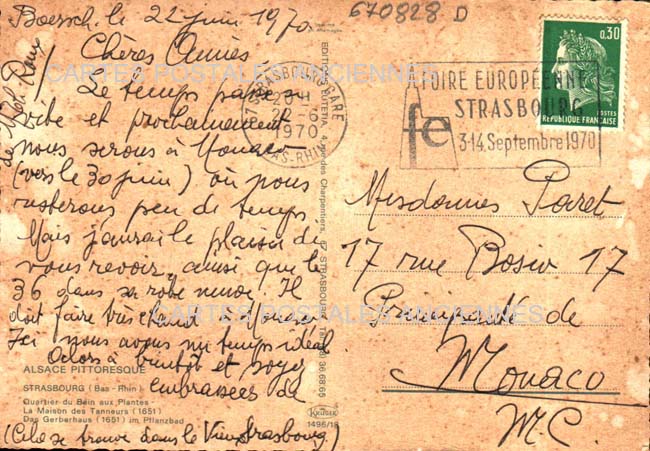 Boersch, le 22 juin 1970
670828 D
Chères Amies
Le temps passe
vite et prochainement
nous serons à Monaco
(vers le 30 juin) où nous
resterons peu de temps
Mais j'aurai le plaisir de
vous revoir, ainsi que le
36 dans sa robe neuve. Il
doit faire très chaud à Monaco
Ici nous avons un temps idéal
Alors à bientôt et soyez
embrassées de
(Cela se trouve dans le Vieux Strasbourg)
STRASBOURG GARE
20 H
22-6
1970
BAS-RHIN
FOIRE EUROPÉENNE
STRASBOURG
fe
3-14 Septembre 1970
0,30
POSTES
REPUBLIQUE FRANÇAISE
Mesdames Paret
17 rue Bosio 17
Principauté de
Monaco
M.C.
ALSACE PITTORESQUE
STRASBOURG (Bas-Rhin)
Quartier du Bain aux Plantes
La Maison des Tanneurs (1651)
Das Gerberhaus (1651) im Pflanzbad
KRÜGER
1496/18
CARTES POSTALES ANCIENNES
CARTES POSTALES ANCIENNES